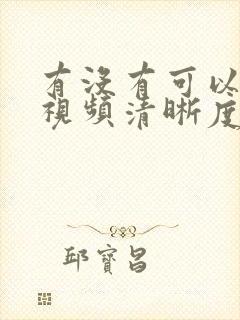 有沒有可以
視頻清晰度
邱寶昌